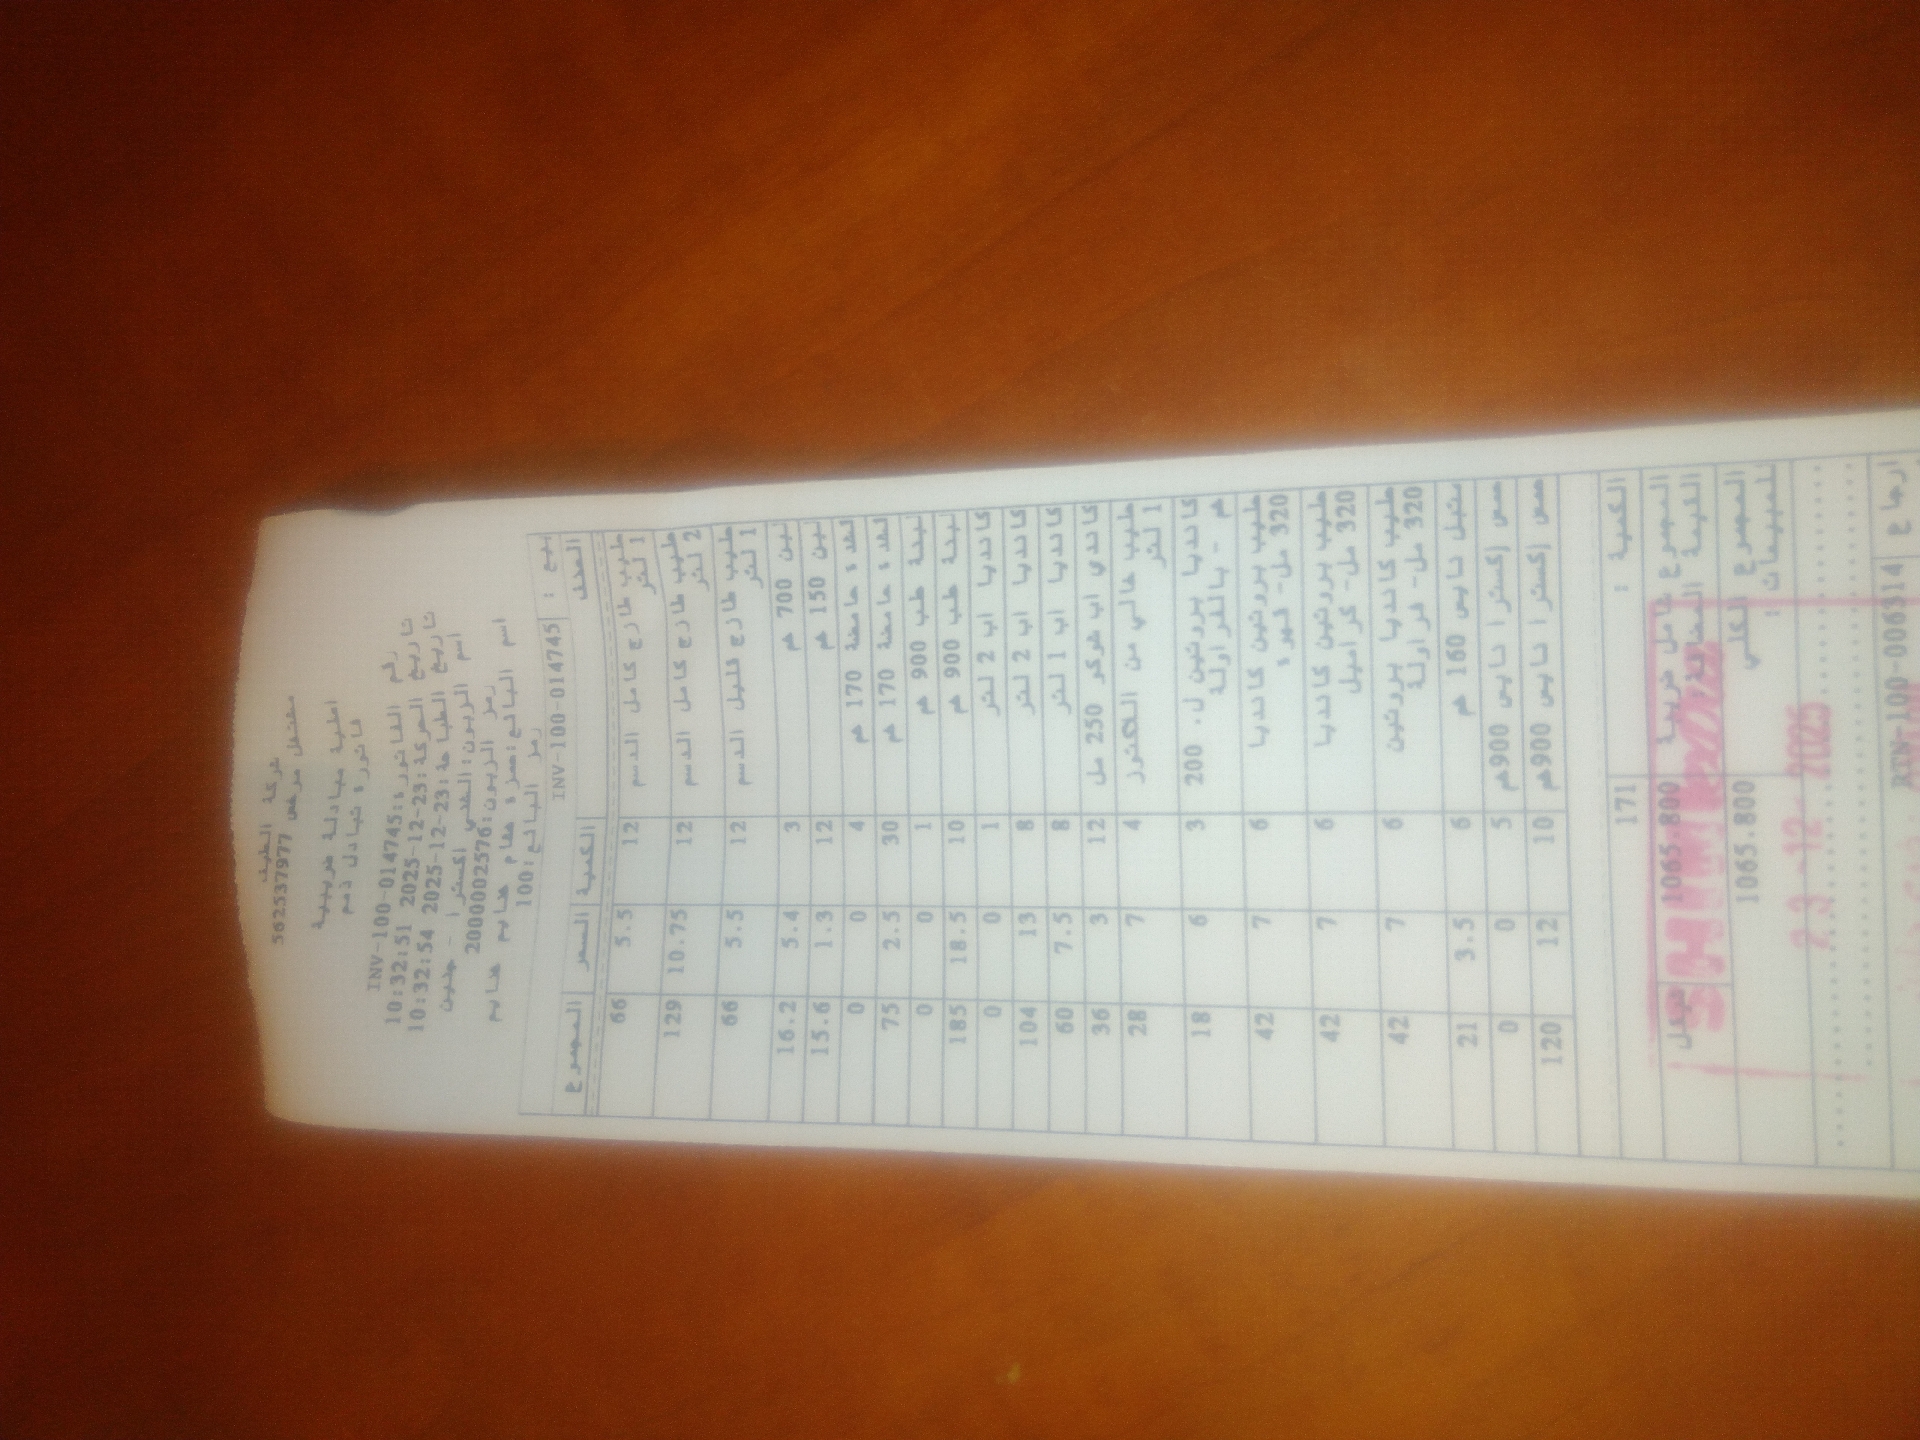 شركة الطيف
مشتغل مرخص 562537977
اصلية مبادلة ضريبية
فاتورة تبادل ذمم
رقم الفاتورة: INV-100-014745
تاريخ الحركة: 2025-12-23 10:32:51
تاريخ الطباعة: 2025-12-23 10:32:54
اسم الزبون: اكسترا - جنين
رمز الزبون: 2000002576
اسم البائع: حمزة هشام
رمز البائع: 100
بيع : INV-100-014745
الصنف الكمية السعر المجموع
حليب طازج كامل الدسم 1 لتر 12 5.5 66
حليب طازج كامل الدسم 2 لتر 12 10.75 129
حليب طازج قليل الدسم 1 لتر 12 5.5 66
لبن 700 غم 3 5.4 16.2
لبن 150 غم 12 1.3 15.6
قشدة حامضة 170 غم 4 0 0
قشدة حامضة 170 غم 30 2.5 75
لبنة علب 900 غم 1 0 0
لبنة علب 900 غم 10 18.5 185
كانديا اب 2 لتر 1 0 0
كانديا اب 2 لتر 8 13 104
كانديا اب 1 لتر 8 7.5 60
كاندي اب شوكو 250 مل 12 3 36
حليب خالي من اللكتوز 1 لتر 4 7 28
كانديا بروتين ل. 200 غم - بالفراولة 3 6 18
حليب بروتين كانديا 320 مل- قهوة 6 7 42
حليب بروتين كانديا 320 مل- كراميل 6 7 42
حليب كانديا بروتين 320 مل- فراولة 6 7 42
متبل نايس 160 غم 6 3.5 21
حمص إكسترا نايس 900غم 5 0 0
حمص إكسترا نايس 900غم 10 12 120
الكمية : 171
المجموع شامل ضريبة القيمة المضافة 1065.800 شيكل
المجموع الكلي للمبيعات : 1065.800
23-12-2025
ارجاع RTN-100-006314